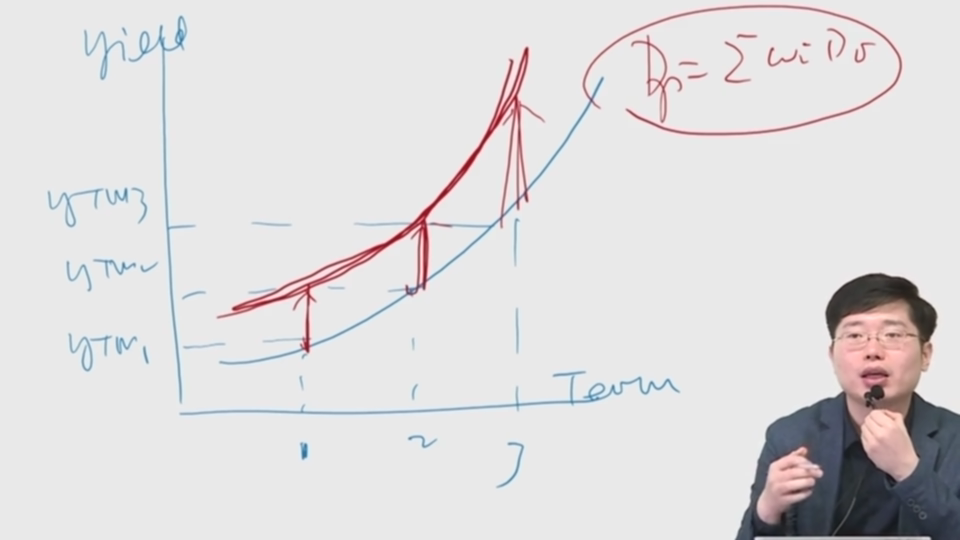 yield
Dp = Σ wi Di
YTM3
YTM2
YTM1
Term
1 2 3